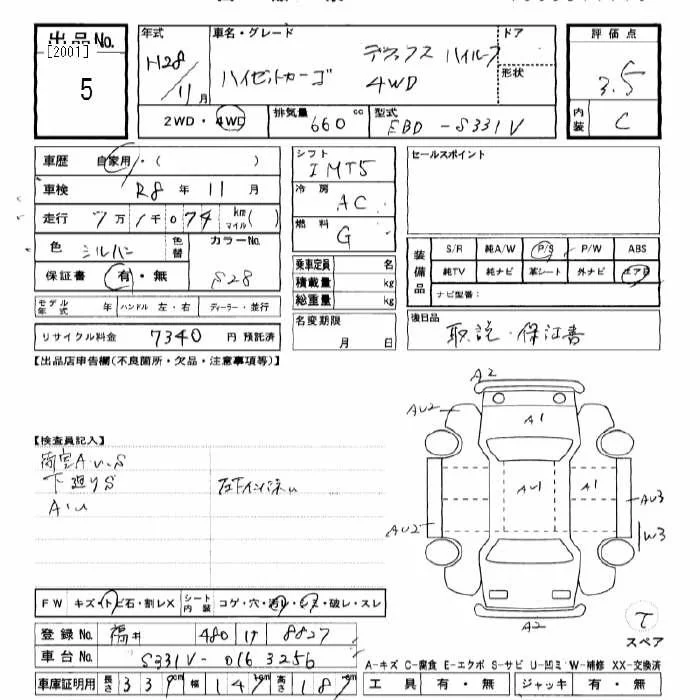 出品No.
[2001]
5
年式
H28/11月
車名・グレード
ハイゼットカーゴ
デラックス ハイルーフ
4WD
ドア
形状
評価点
3.5
内装
C
2WD・4WD
排気量 660 cc
型式 EBD-S331V
車歴 自家用・( )
車検 R8 年 11 月
走行 7万1千074 km マイル( )
色 シルバー
色替
カラーNo.
S28
保証書 有・無
モデル年式 年
ハンドル 左・右
ディーラー・並行
リサイクル料金 7340 円 預託済
シフト
IMT5
冷房
AC
燃料
G
乗車定員 名
積載量 kg
総重量 kg
名変期限
月 日
セールスポイント
装備品
S/R 純A/W P/S P/W ABS
純TV 純ナビ 革シート 外ナビ エアB
ナビ型番:
後日品
取説・保証書
【出品店申告欄(不良箇所・欠品・注意事項等)】
【検査員記入】
荷室AU、S
下廻りS
A・U
A2
AU2
A1
AU1
A1
AU3
AU2
W3
A2
スペア
FW キズ・トビ石・割レX
シート内装 コゲ・穴・汚レ・シミ・破レ・スレ
登録No. 福井 480 け 8827
車台No. S331V-0163256
車庫証明用 長さ 339cm 幅 147cm 高さ 187cm
A-キズ C-腐食 E-エクボ S-サビ U-凹ミ W-補修 XX-交換済
工具 有・無 ジャッキ 有・無